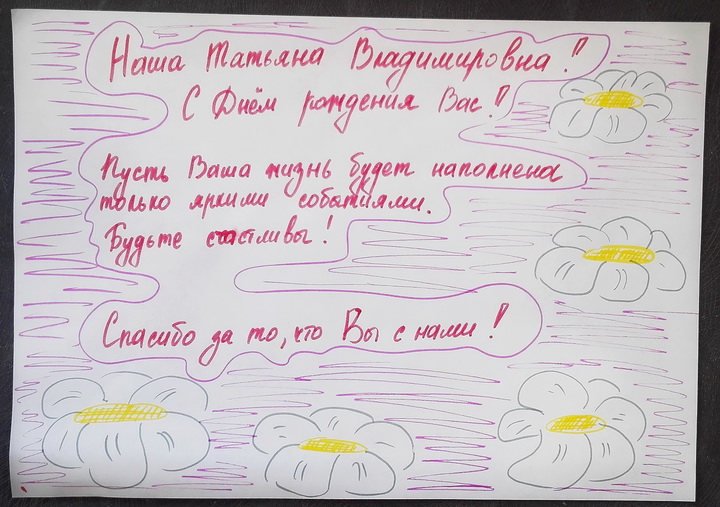 Наша Татьяна Владимировна!
С Днём рождения Вас!
Пусть Ваша жизнь будет наполнена
только яркими событиями.
Будьте счастливы!
Спасибо за то, что Вы с нами!